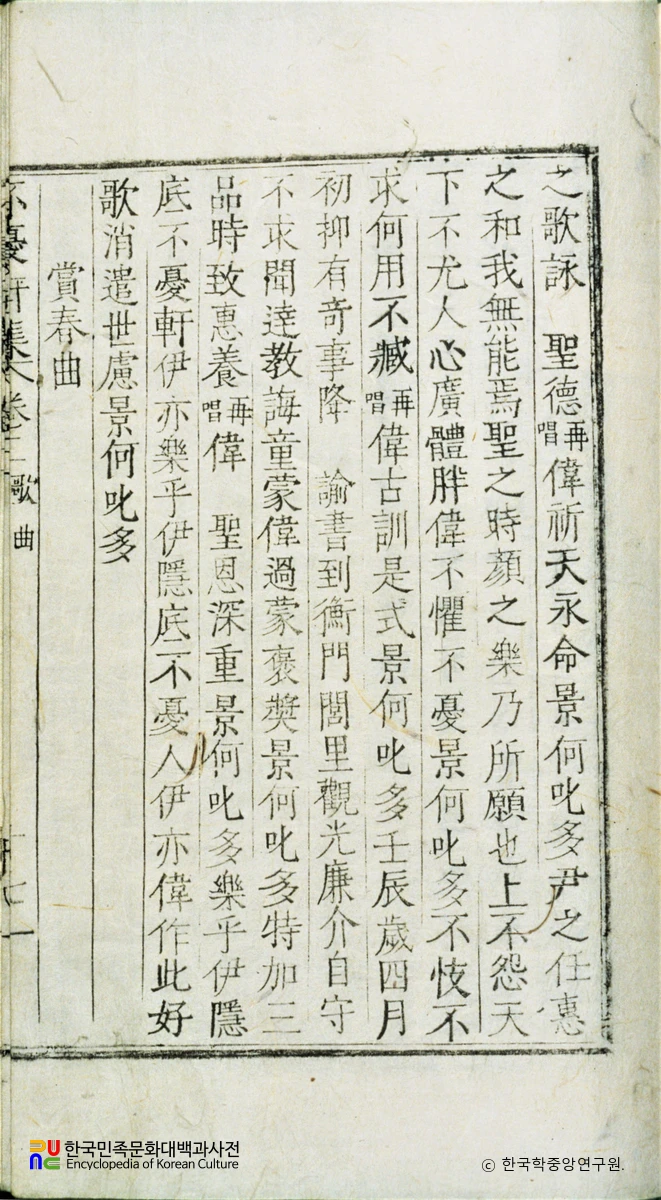 之歌詠 聖德再唱偉祈天永命景何叱多尹之任惠
之和我無能焉聖之時顏之樂乃所願也上不怨天
下不尤人心廣體胖偉不懼不憂景何叱多不忮不
求何用不臧再唱偉古訓是式景何叱多壬辰歲四月
初抑有奇事降 諭書到衡門閭里觀光廉介自守
不求聞達教誨童蒙偉過蒙褒獎景何叱多特加三
品時致惠養再唱偉 聖恩深重景何叱多樂乎伊隱
底不憂軒伊亦樂乎伊隱底不憂人伊亦偉作此好
歌消遣世慮景何叱多
賞春曲
不憂軒集 卷二 歌曲
한국민족문화대백과사전
Encyclopedia of Korean Culture
ⓒ 한국학중앙연구원.